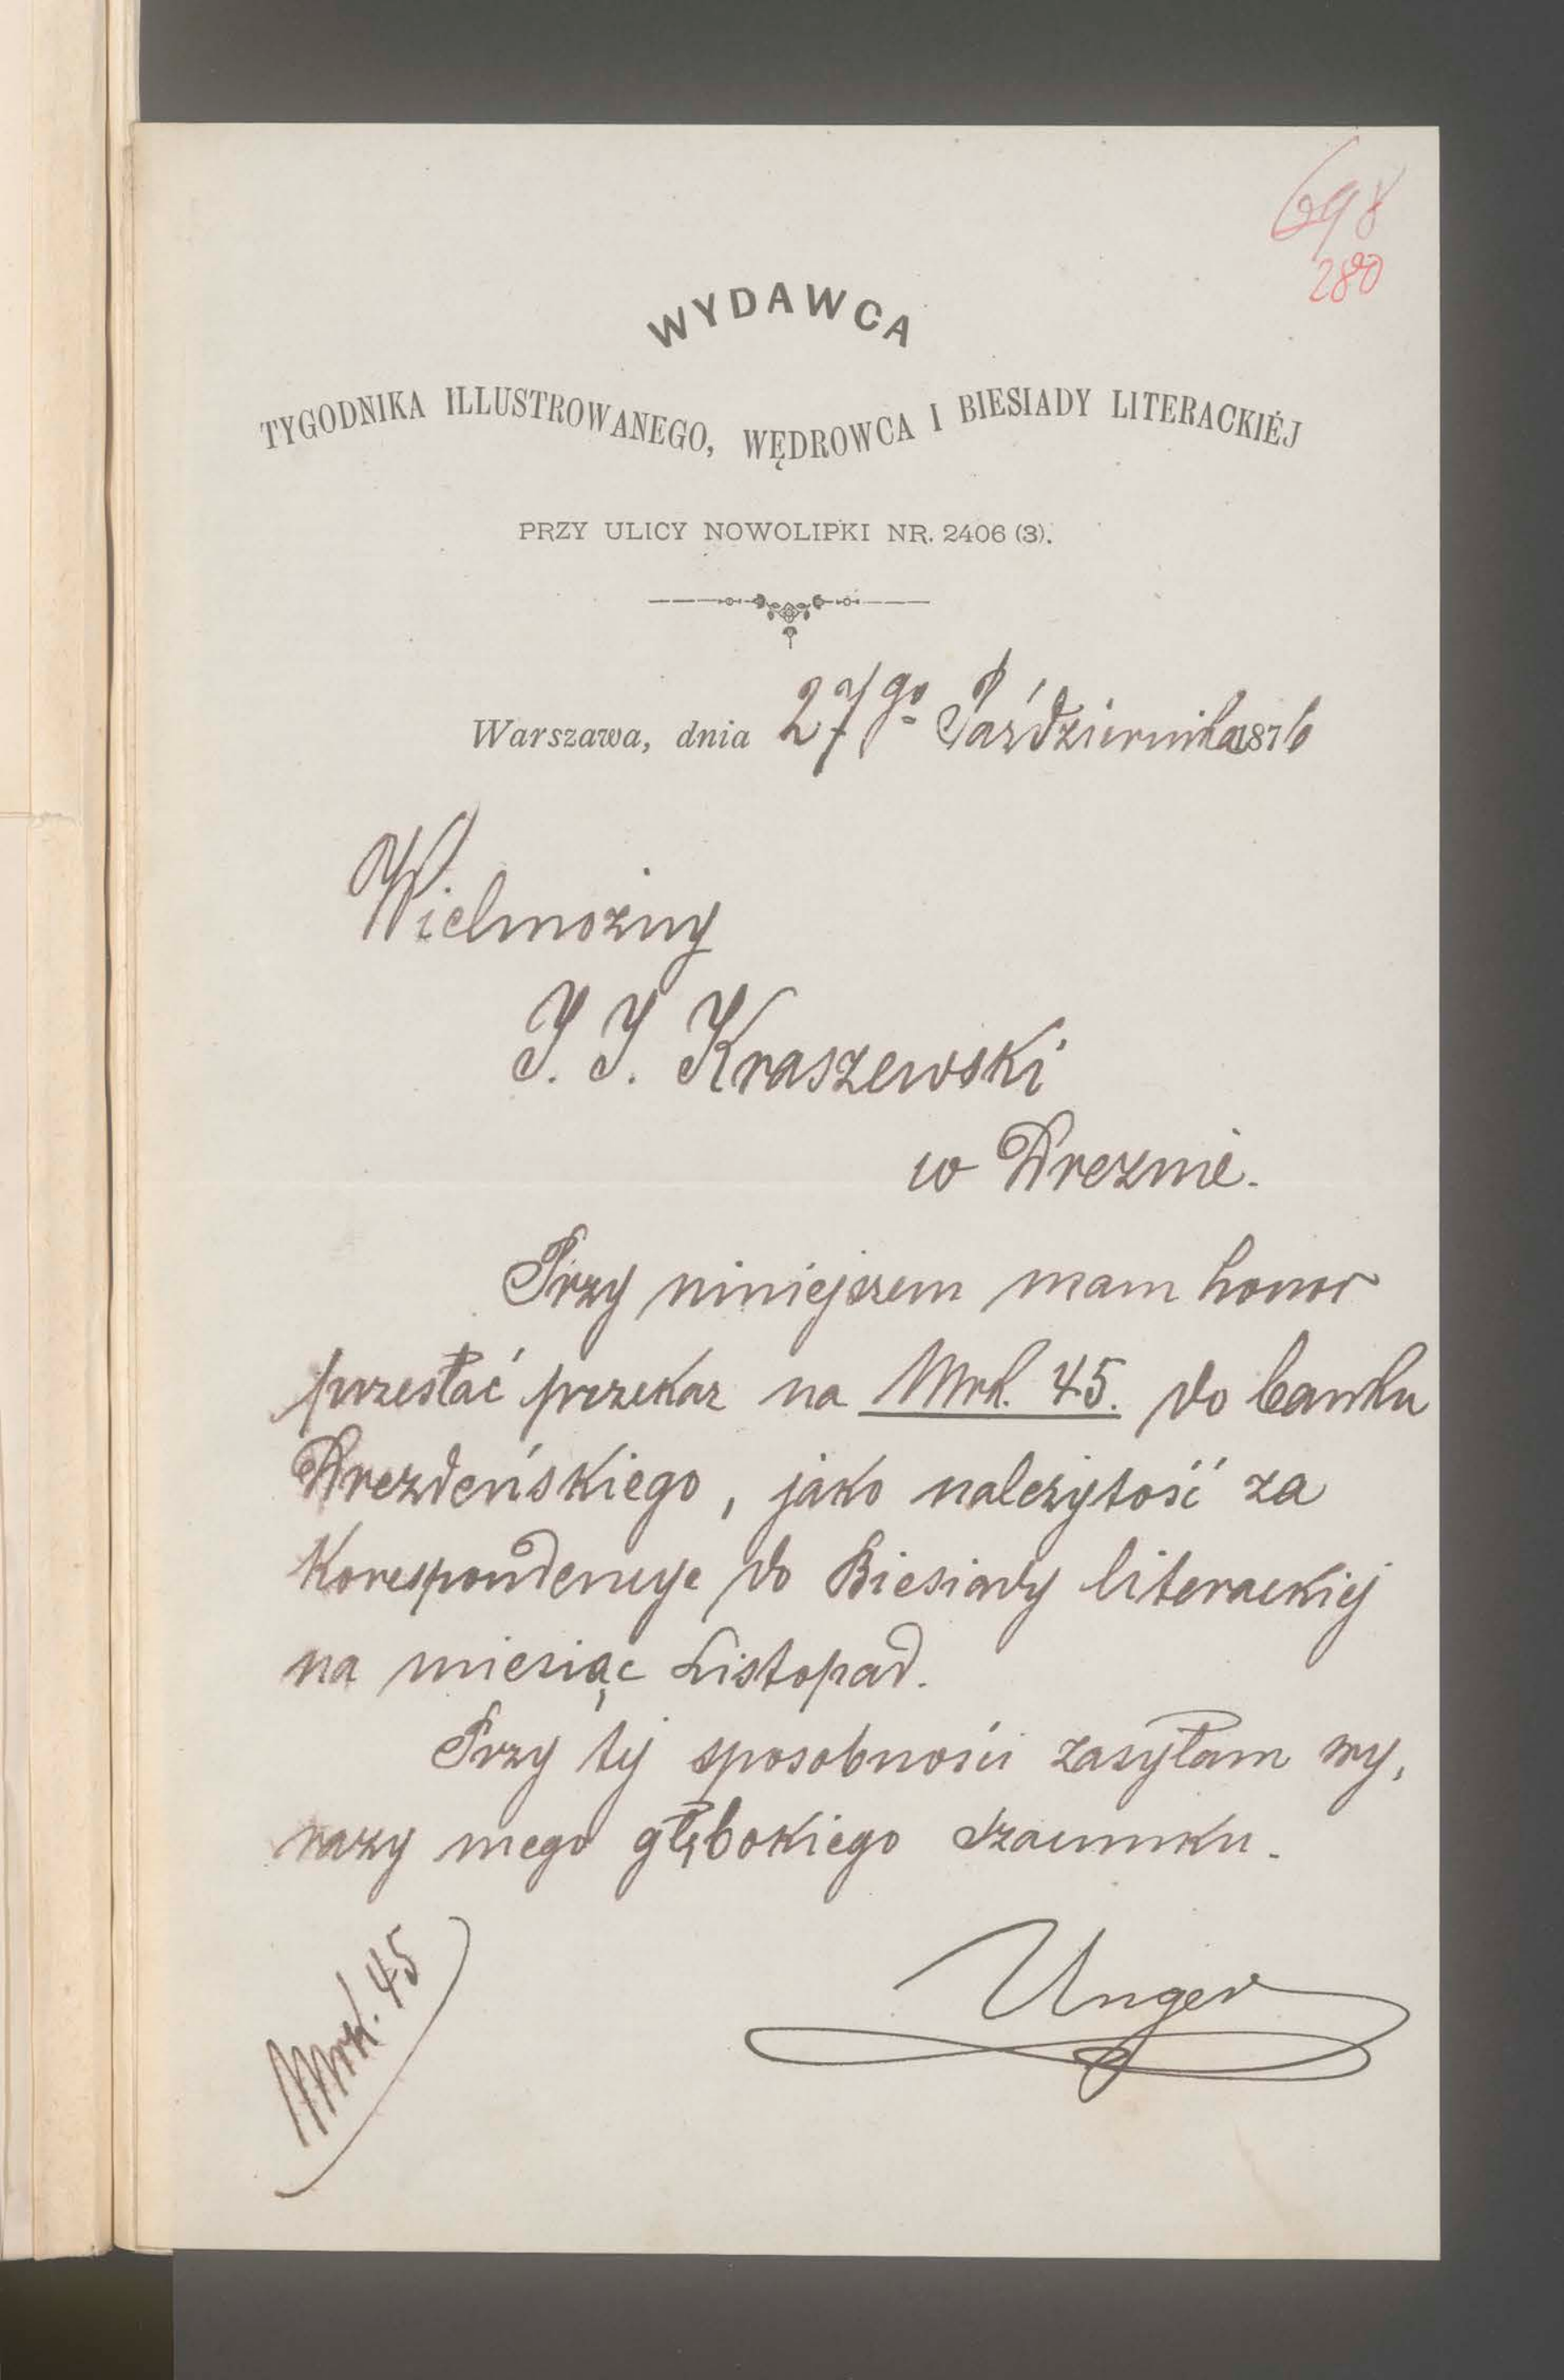 698
280
WYDAWCA
TYGODNIKA ILLUSTROWANEGO, WĘDROWCA I BIESIADY LITERACKIÉJ
PRZY ULICY NOWOLIPKI NR. 2406 (3).
Warszawa, dnia 27go Października 1876
Wielmożny
J. J. Kraszewski
w Dreznie.
Przy niniejszem mam honor
przesłać przekaz na Mrk. 45. do banku
Drezdeńskiego, jako należytość za
Korespondencye do Biesiady literackiej
na miesiąc Listopad.
Przy tej sposobności zasyłam wy,
razy mego głębokiego szacunku.
Mrk. 45
Unger